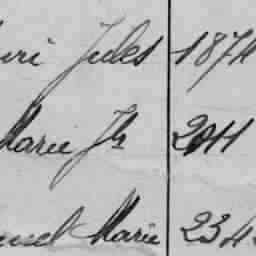 uri Jules 1874
Marie Jh 2011
uel Marie 234